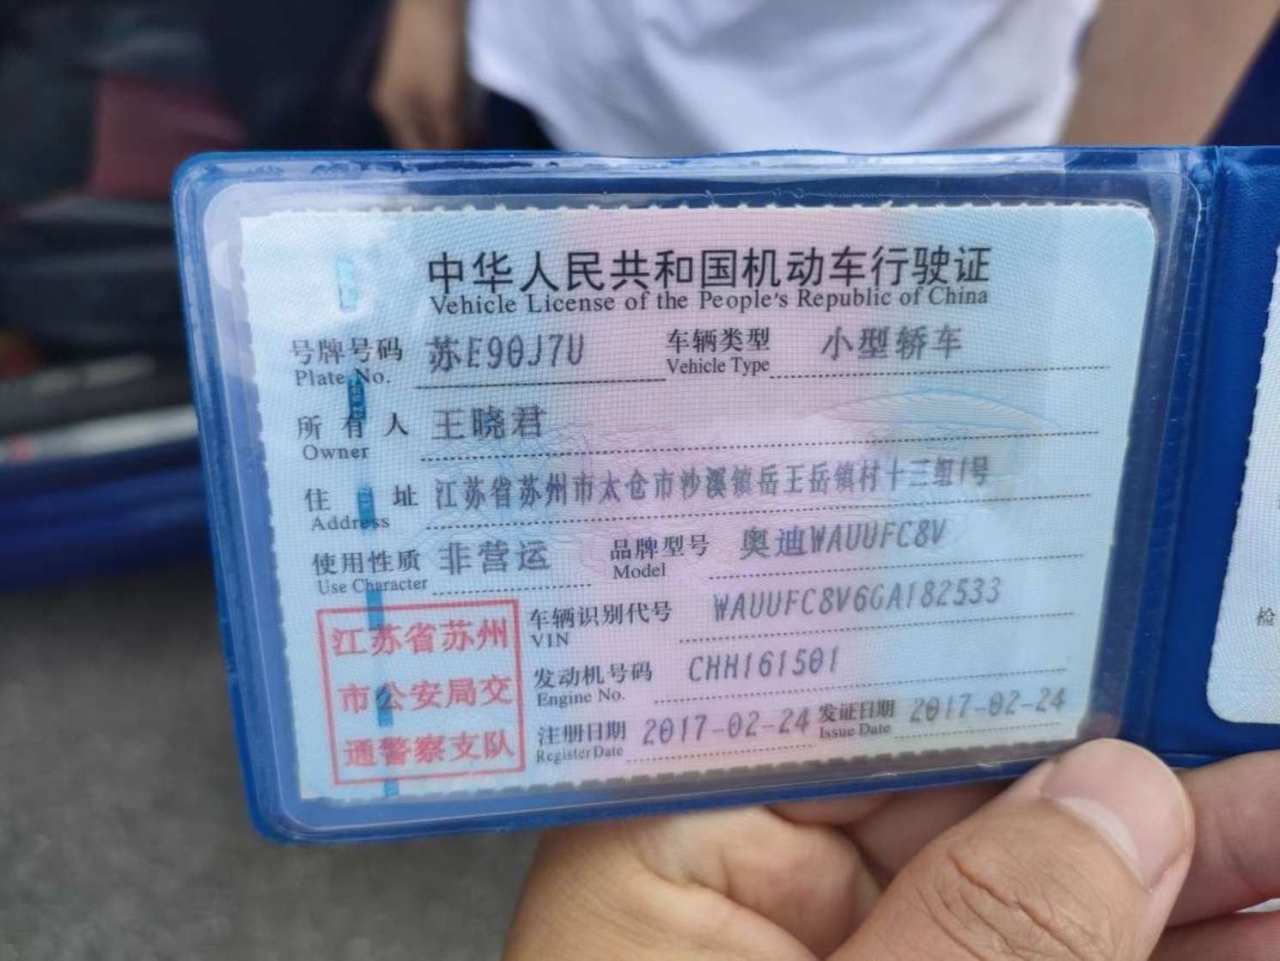 中华人民共和国机动车行驶证
Vehicle License of the People's Republic of China
号牌号码 苏E90J7U 车辆类型 小型轿车
Plate No. Vehicle Type
所有人 王晓君
Owner
住址 江苏省苏州市太仓市沙溪镇岳王岳镇村十三组1号
Address
使用性质 非营运 品牌型号 奥迪WAUUFC8V
Use Character Model
江苏省苏州
市公安局交
通警察支队
车辆识别代号 WAUUFC8V6GA182533
VIN
发动机号码 CHH161501
Engine No.
注册日期 2017-02-24 发证日期 2017-02-24
Register Date Issue Date
检